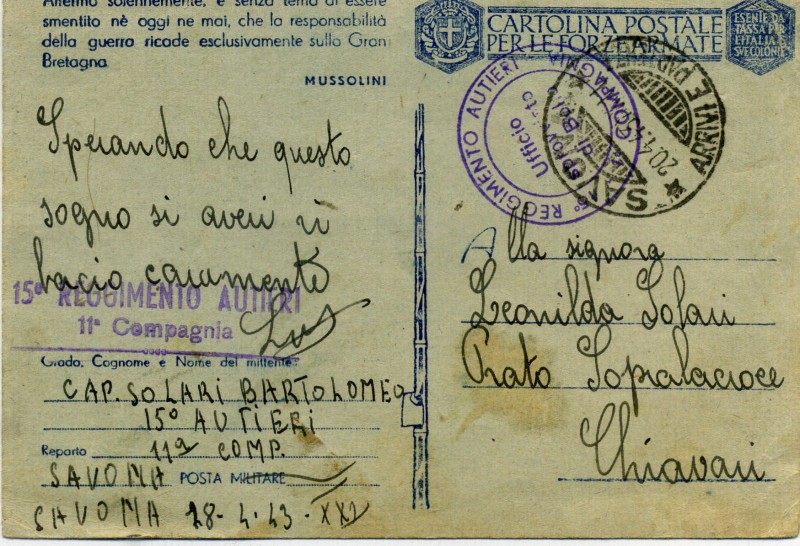 Affermo solennemente, e senza tema di essere
smentito nè oggi ne mai, che la responsabilità
della guerra ricade esclusivamente sulla Gran
Bretagna
MUSSOLINI
Sperando che questo
sogno si averi vi
bacio caramente
15º REGGIMENTO AUTIERI
11ª Compagnia
Grado, Cognome e Nome del mittente:
CAP. SOLARI BARTOLOMEO
15º AUTIERI
Reparto 11ª COMP.
SAVONA POSTA MILITARE
SAVONA 28-4-43-XXI
CARTOLINA POSTALE
PER LE FORZE ARMATE
ESENTE DA
TASSA PER
L'ITALIA
E SVE COLONIE
REGGIMENTO AUTIERI
COMPAGNIA
Ufficio
ARRIVI E PAR
20.4.43
Alla signora
Leonilda Solari
Prato Sopralacroce
Chiavari